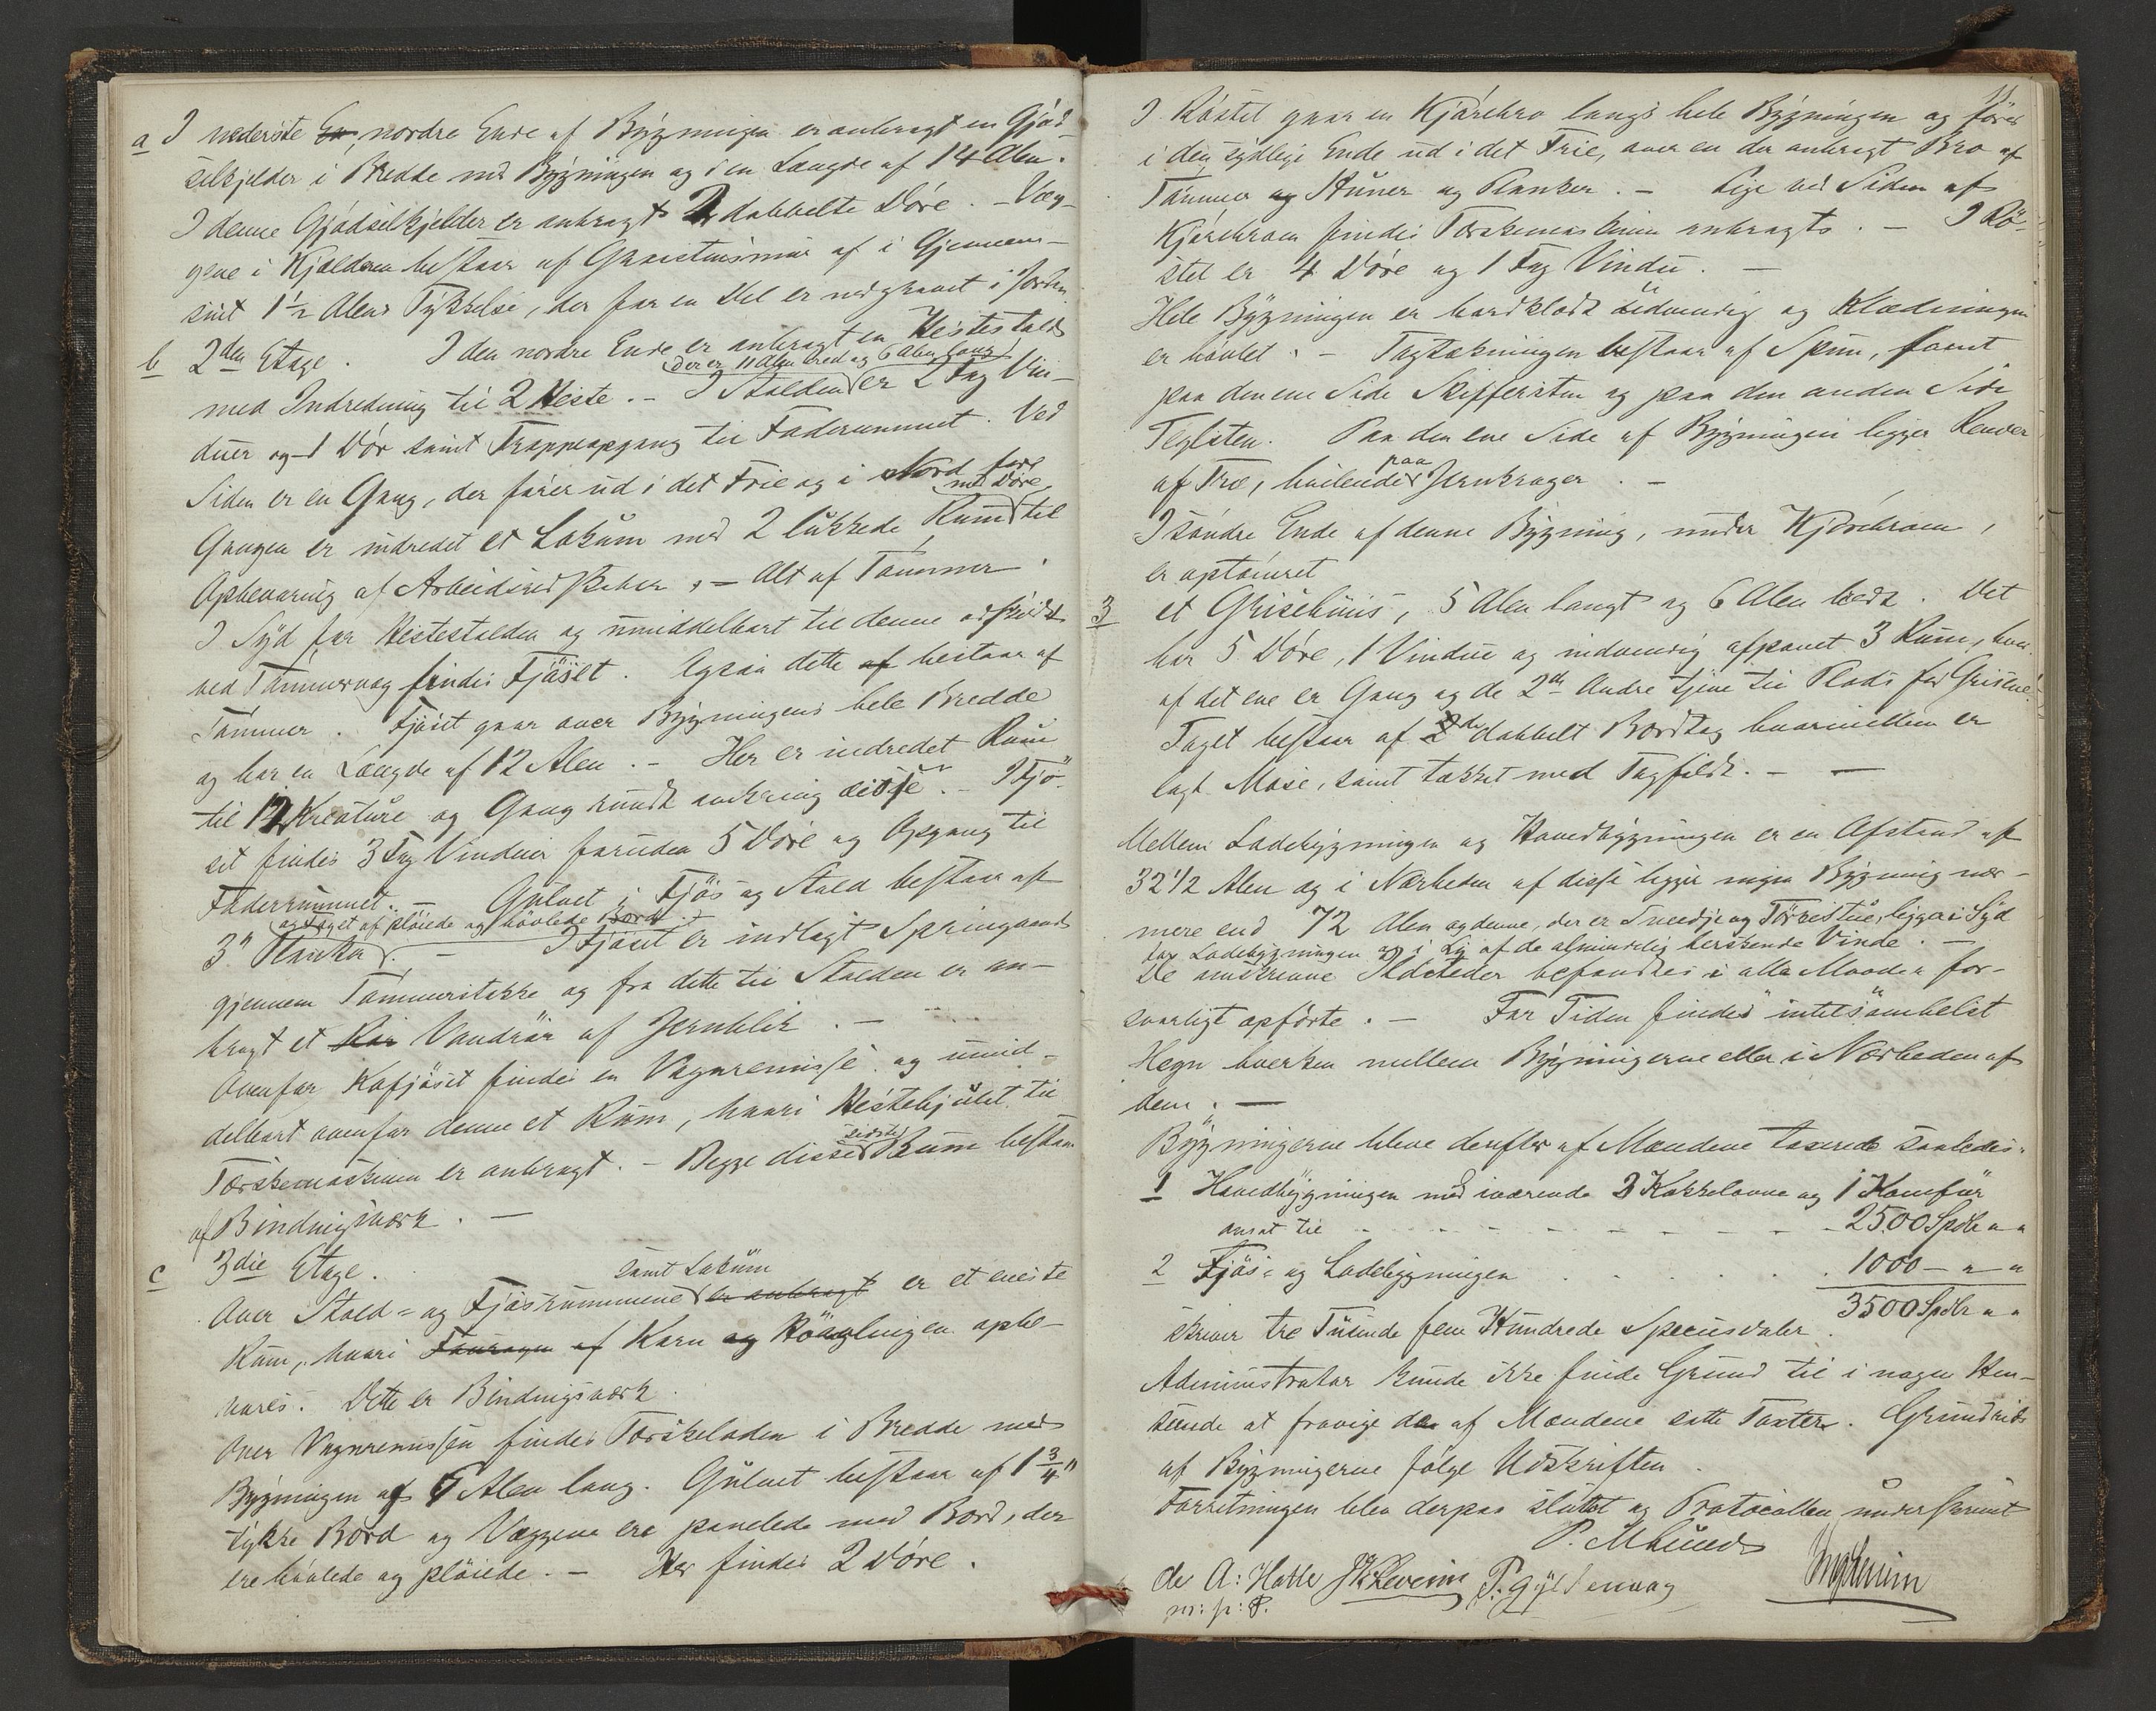 a I nederste En nordre Ende af Bygningen er anbragt en Gjød-
selkjelder i Bredde med Bygningen og i en Længde af 14 Alen.
I denne Gjødselkjelder er anbragt 2 dobbelte Døre. - Væg-
gene i Kjælderen bestaar af Graasteinsmur af i Gjennem-
snit 1 1/2 Alens Tykkelse, der for en Del er nedgravet i Jorden.
b 2den Etage. I den nordre Ende er anbragt en Hestestald
der er 11 Alen bred og 6 Alen lang
med Indredning til 2 Heste. - I Stalden er 2 Fag Vin-
duer og 1 Dør samt Trappeopgang til Foderrummet. Ved
Siden er en Gang, der fører ud i det Frie og i Nord for
med Døre
Gangen er indredet et Lokum med 2 lukkede Rum til
Opbevaring af Arbeidsredskaber, - Alt af Tømmer.
I Syd for Hestestalden og umiddelbart til denne adskildt
ved Tømmervæg findes Fjøset. Ogsaa dette af bestaar af
Tømmer. Fjøset gaar over Bygningens hele Bredde
og har en Længde af 12 Alen. - Her er indredet Rum
til 12 Kreature og Gang rundt omkring disse. - I Fjø-
set findes 3 Fag Vinduer foruden 5 Døre og Opgang til
Foderrummet. - Gulvet i Fjøs og Stald bestaar af
og Taget af pløiede og høvlede Bord
3" Planker. - I Fjøset er indlagt Springvand
gjennem Tømmerstokke og fra dette til Stalden er an-
bragt et Rør Vandrør af Jernblik. -
Ovenfor Kofjøset findes en Vognremisse og umid-
delbart ovenfor denne et Rum, hvori Hestehjulet til
sidste
Tærskemaskinen er anbragt. - Begge disse Rum bestaar
af Bindingsværk. -
c 3die Etage.
samt Lokum
Over Stald- og Fjøsrummene er anbragt er et eneste
Rum, hvori af Korn og Høavlingen opbe-
vares. Dette er Bindingsværk.
Over Vognremissen findes Tærskeladen i Bredde med
Bygningen af 7 Alen lang. Gulvet bestaar af 1 3/4"
tykke Bord og Væggene ere panelede med Bord, der
ere høvlede og pløiede. - Her findes 2 Døre.
11.
I Røstet gaar en Kjørebro langs hele Bygningen og fører
i den sydlige Ende ud i det Frie, over en der anbragt Bro af
Tømmer og Stuner og Planker. - Lige ved Siden af
Kjørebroen findes Tærskemaskinen anbragts. - I Rø-
stet er 4 Døre og 1 Fag Vindu. -
Hele Bygningen er bordklædt udvendig og Klædningen
er høvlet. - Tagtækningen bestaar af Spun, samt
paa den ene Side Skiffersten og paa den anden Side
Teglsten. Paa den ene Side af Bygningen ligger Render
paa
af Træ, hvilende Jernkroger. -
I søndre Ende af denne Bygning, under Kjørebroen,
er optømret
3 et Grisehuus, 5 Alen langt og 6 Alen bredt. Det
har 5 Døre, 1 Vindue og indvendig afpanet 3 Rum, hvor-
af det ene er Gang og de 2de Andre tjene til Plads for Grisene.
Taget bestaar af 2de dobbelt Bordtag hvorimellem er
lagt Mose, samt tækket med Tagfildt. - -
Mellem Ladebygningen og Hovedbygningen er en Afstand af
32 1/2 Alen og i Nærheden af disse ligger ingen Bygning nær-
mere end 72 Alen og denne, der er Smedje og Tørrestue, ligge i Syd
for Ladebygningen og i Ly af de almindelig herskende Vinde. -
De omskrevne Ildsteder befandtes i alle Maader for-
svarligt opførte. - For Tiden findes intetsomhelst
Hegn hverken mellem Bygningerne eller i Nærheden af
dem. -
Bygningerne bleve derefter af Mændene taxerede saaledes:
1 Hovedbygningen med iværende 3 Kakkelovne og 1 Komfür
ansat til - - - - - - - - 2500 Spdlr " "
2 Fjøs- og Ladebygningen . . . . . . 1000 - " "
3500 Spdlr " "
skriver tre Tusinde fem Hundrede Speciesdaler.
Administrator kunde ikke finde Grund til i nogen Hen-
seende at fravige de af Mændene satte Taxter. Grundrids
af Bygningerne følge Udskriften.
Forretningen blev derpaa sluttet og Protocollen underskrevet
P. M. Lund
de A: Holte J K Leverin P. Gyldenvog
m: p: P.